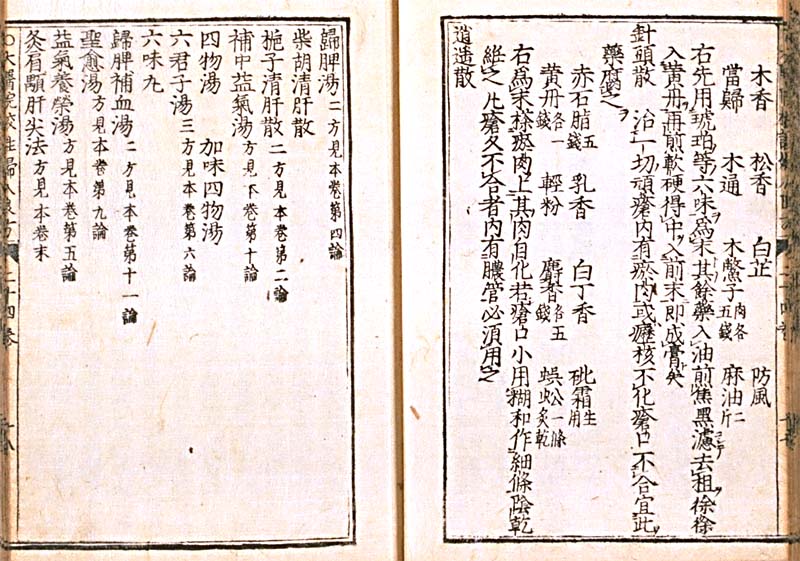 木香 松香 白芷 防風
當歸 木通 木鱉子肉各五錢 麻油二斤
右先用琥珀等六味為末其餘藥入油煎焦黑濾去柤徐徐
入黄丹再煎軟硬得中入前末即成膏矣
針頭散 治一切頑瘡内有瘀肉或癧核不化瘡口不合宜此
藥腐之
赤石脂五錢 乳香 白丁香 砒霜生用
黄丹各一錢 輕粉 麝香各五錢 蜈蚣一條炙乾
右為末搽瘀肉上其肉自化若瘡口小用糊和作細條陰乾
絍之凡瘡久不合者内有膿管必須用之
逍遥散
歸脾湯二方見本卷第四論
柴胡清肝散
梔子清肝散二方見本卷第二論
補中益氣湯方見下卷第十論
四物湯 加味四物湯
六君子湯三方見本卷第六論
六味丸
歸脾補血湯二方見本卷第十一論
聖愈湯方見本卷第九論
益氣養榮湯方見本卷第五論
灸肩顒肝尖法方見本卷末
太醫院校註婦人良方 二十四卷